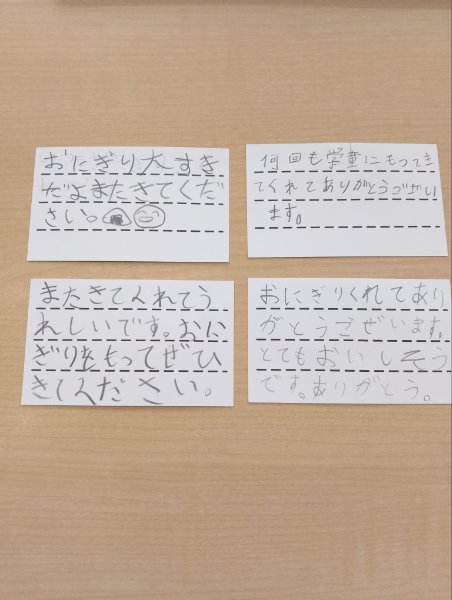 おにぎり大すき
だよまたきてくだ
さい。
何回も学童にもってき
てくれてありがとうございい
ます。
またきてくれてう
れしいです。おに
ぎりをもってぜひ
きてください。
おにぎりくれてあり
がとうございます。
とてもおいしそう
です。ありがとう。